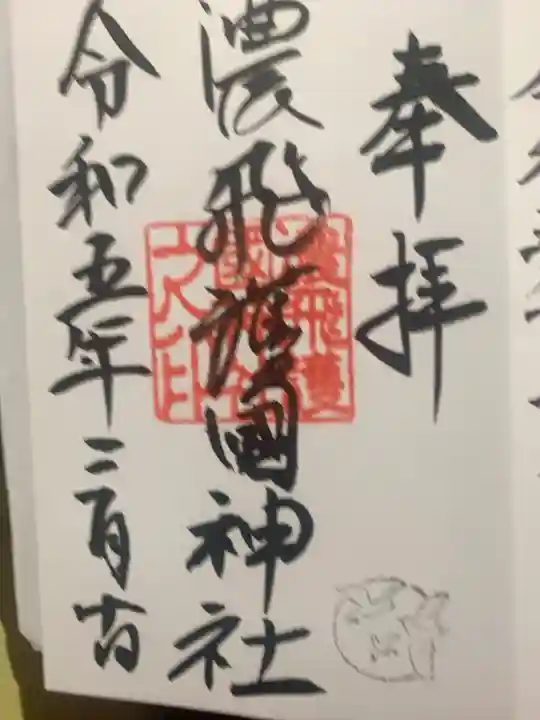 奉拝
濃飛護國神社
令和五年二月